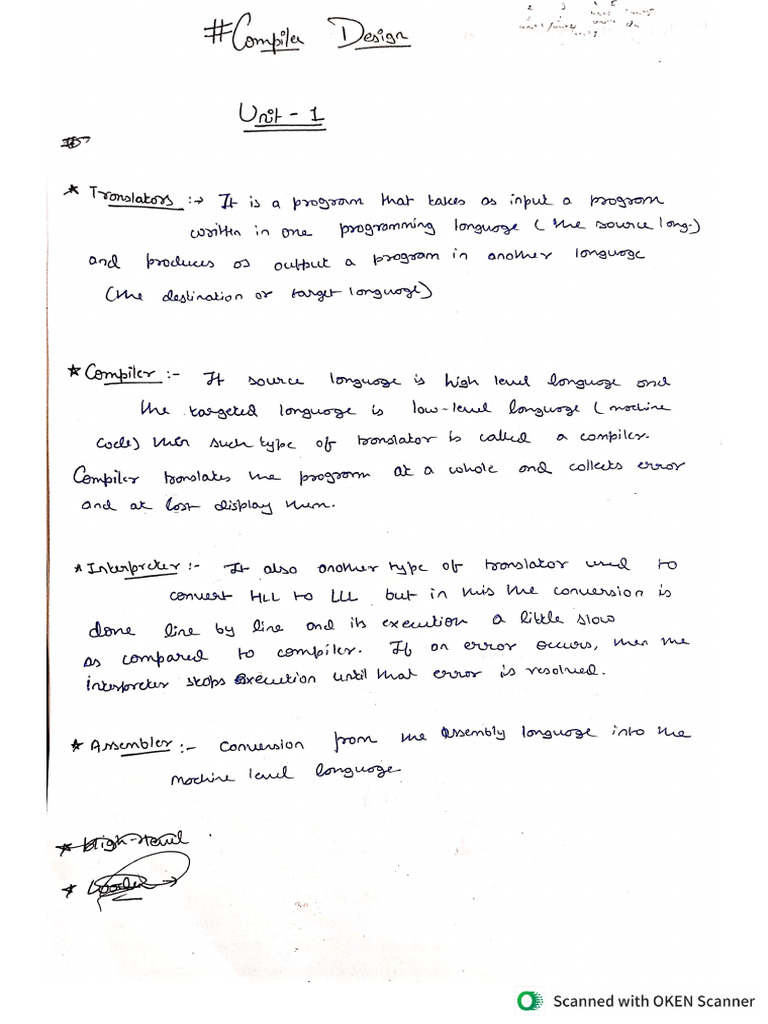 #Compiler Design
Unit - 1
* Translators :→ It is a program that takes as input a program
written in one programming language (the source lang.)
and produces as output a program in another language
(the destination or target language)
* Compiler :- If source language is high level language and
the targeted language is low-level language (machine
code) then such type of translator is called a compiler.
Compiler translates the program at a whole and collects error
and at last display them.
* Interpreter :- It also another type of translator used to
convert HLL to LLL but in this the conversion is
done line by line and its execution a little slow
as compared to compiler. If an error occurs, then the
interpreter stops execution until that error is resolved.
* Assembler :- Conversion from the assembly language into the
machine level language
* High-level
*
Scanned with OKEN Scanner